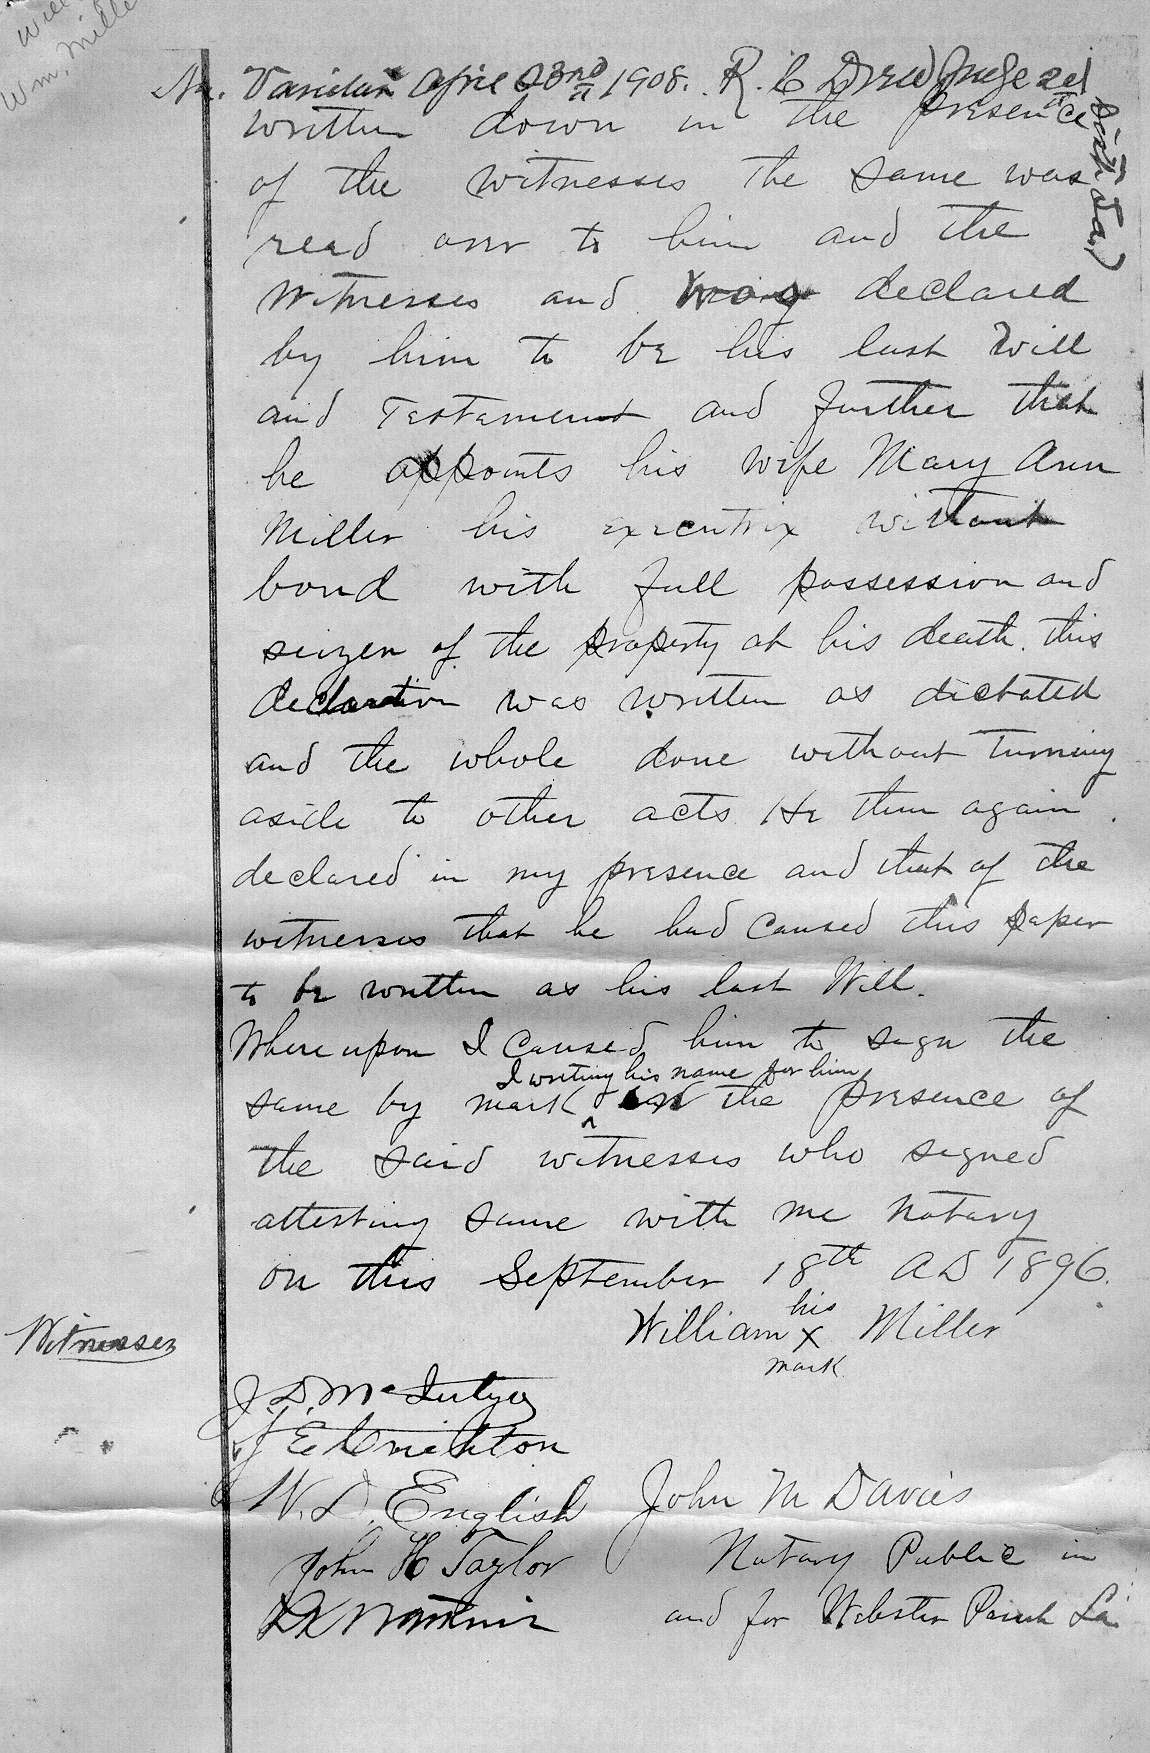 Will
Wm. Mille
April 23rd 1908. R. C. Drew Judge 2d
Dist. La.
written down in the presence
of the witnesses the same was
read over to him and the
witnesses and was declared
by him to be his last Will
and Testament and further that
he appoints his wife Mary Ann
Miller his executrix without
bond with full possession and
seizen of the property at his death. this
declaration was written as dictated
and the whole done without turning
aside to other acts He then again
declared in my presence and that of the
witnesses that he had caused this paper
to be written as his last Will.
Where upon I caused him to sign the
I writing his name for him
same by mark ^ in the presence of
the said witnesses who signed
attesting same with me Notary
on this September 18th AD 1896.
William his x mark Miller
Witnesses
J. D. McIntyre
J E Crichton
W. D. English
John M Davies
John H Taylor
Notary Public in
and for Webster Parish La.